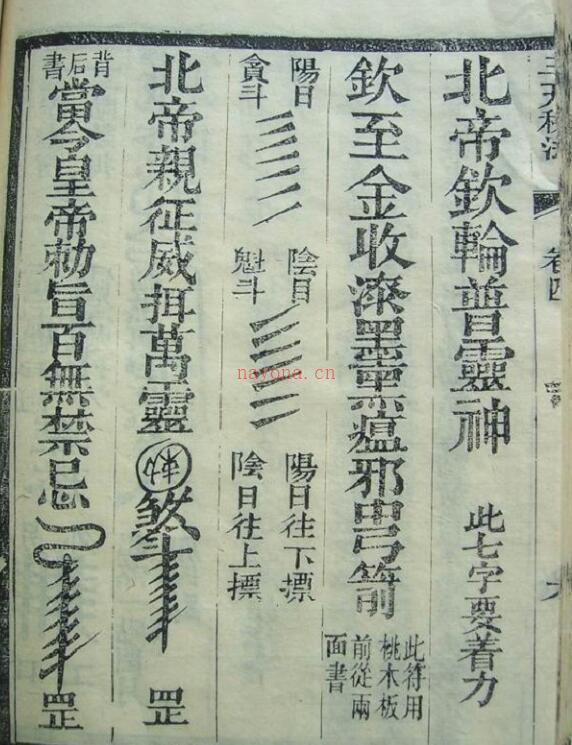 卷四
北帝欽輪普靈神
此七字要着力
欽至金收漆墨黑瘟邪鬼弓箭
此符用
桃木板
前從兩
面書
陽日
貪斗
陰日
魁斗
陽日往下摽
陰日往上摽
北帝親征威揖萬靈
煞
罡
背后書
當今皇帝勅旨百無禁忌
罡
nayona.cn